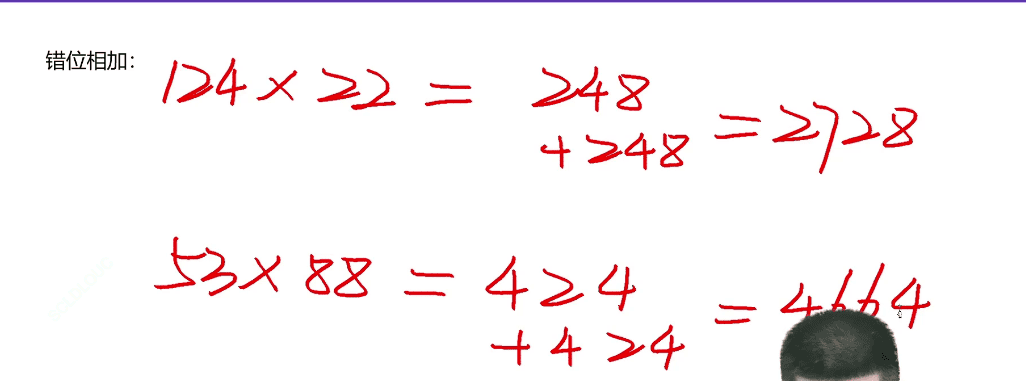 错位相加：
124 × 22 = 248
+248 = 2728
53 × 88 = 424
+424 = 4664